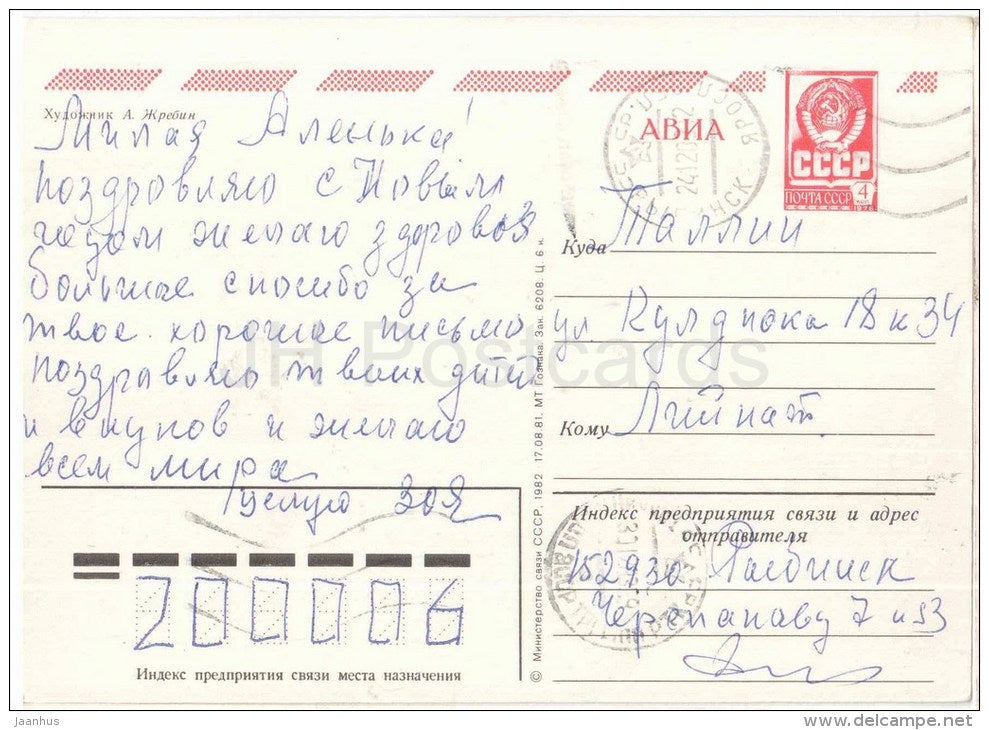 Художник А. Жребин
Милая Аленька!
поздравляю с Новым
годом желаю здоровья
большое спосибо за
твое хорошее письмо
поздравляю твоих дитей
и внуков и желаю
всем мира
Целую Зоя
АВИА
СССР
ПОЧТА СССР
4
Куда Таллин
ул Кулднока 18 к 34
Кому Лийнат
Индекс предприятия связи и адрес
отправителя
152930 Рыбинск
7 53
200006
Индекс предприятия связи места назначения
© Министерство связи СССР, 1982 17.08.81. МТ Гознака. Зак. 6208. Ц. 6 к.
JH Postcards
Jaanhus
delcampe.net